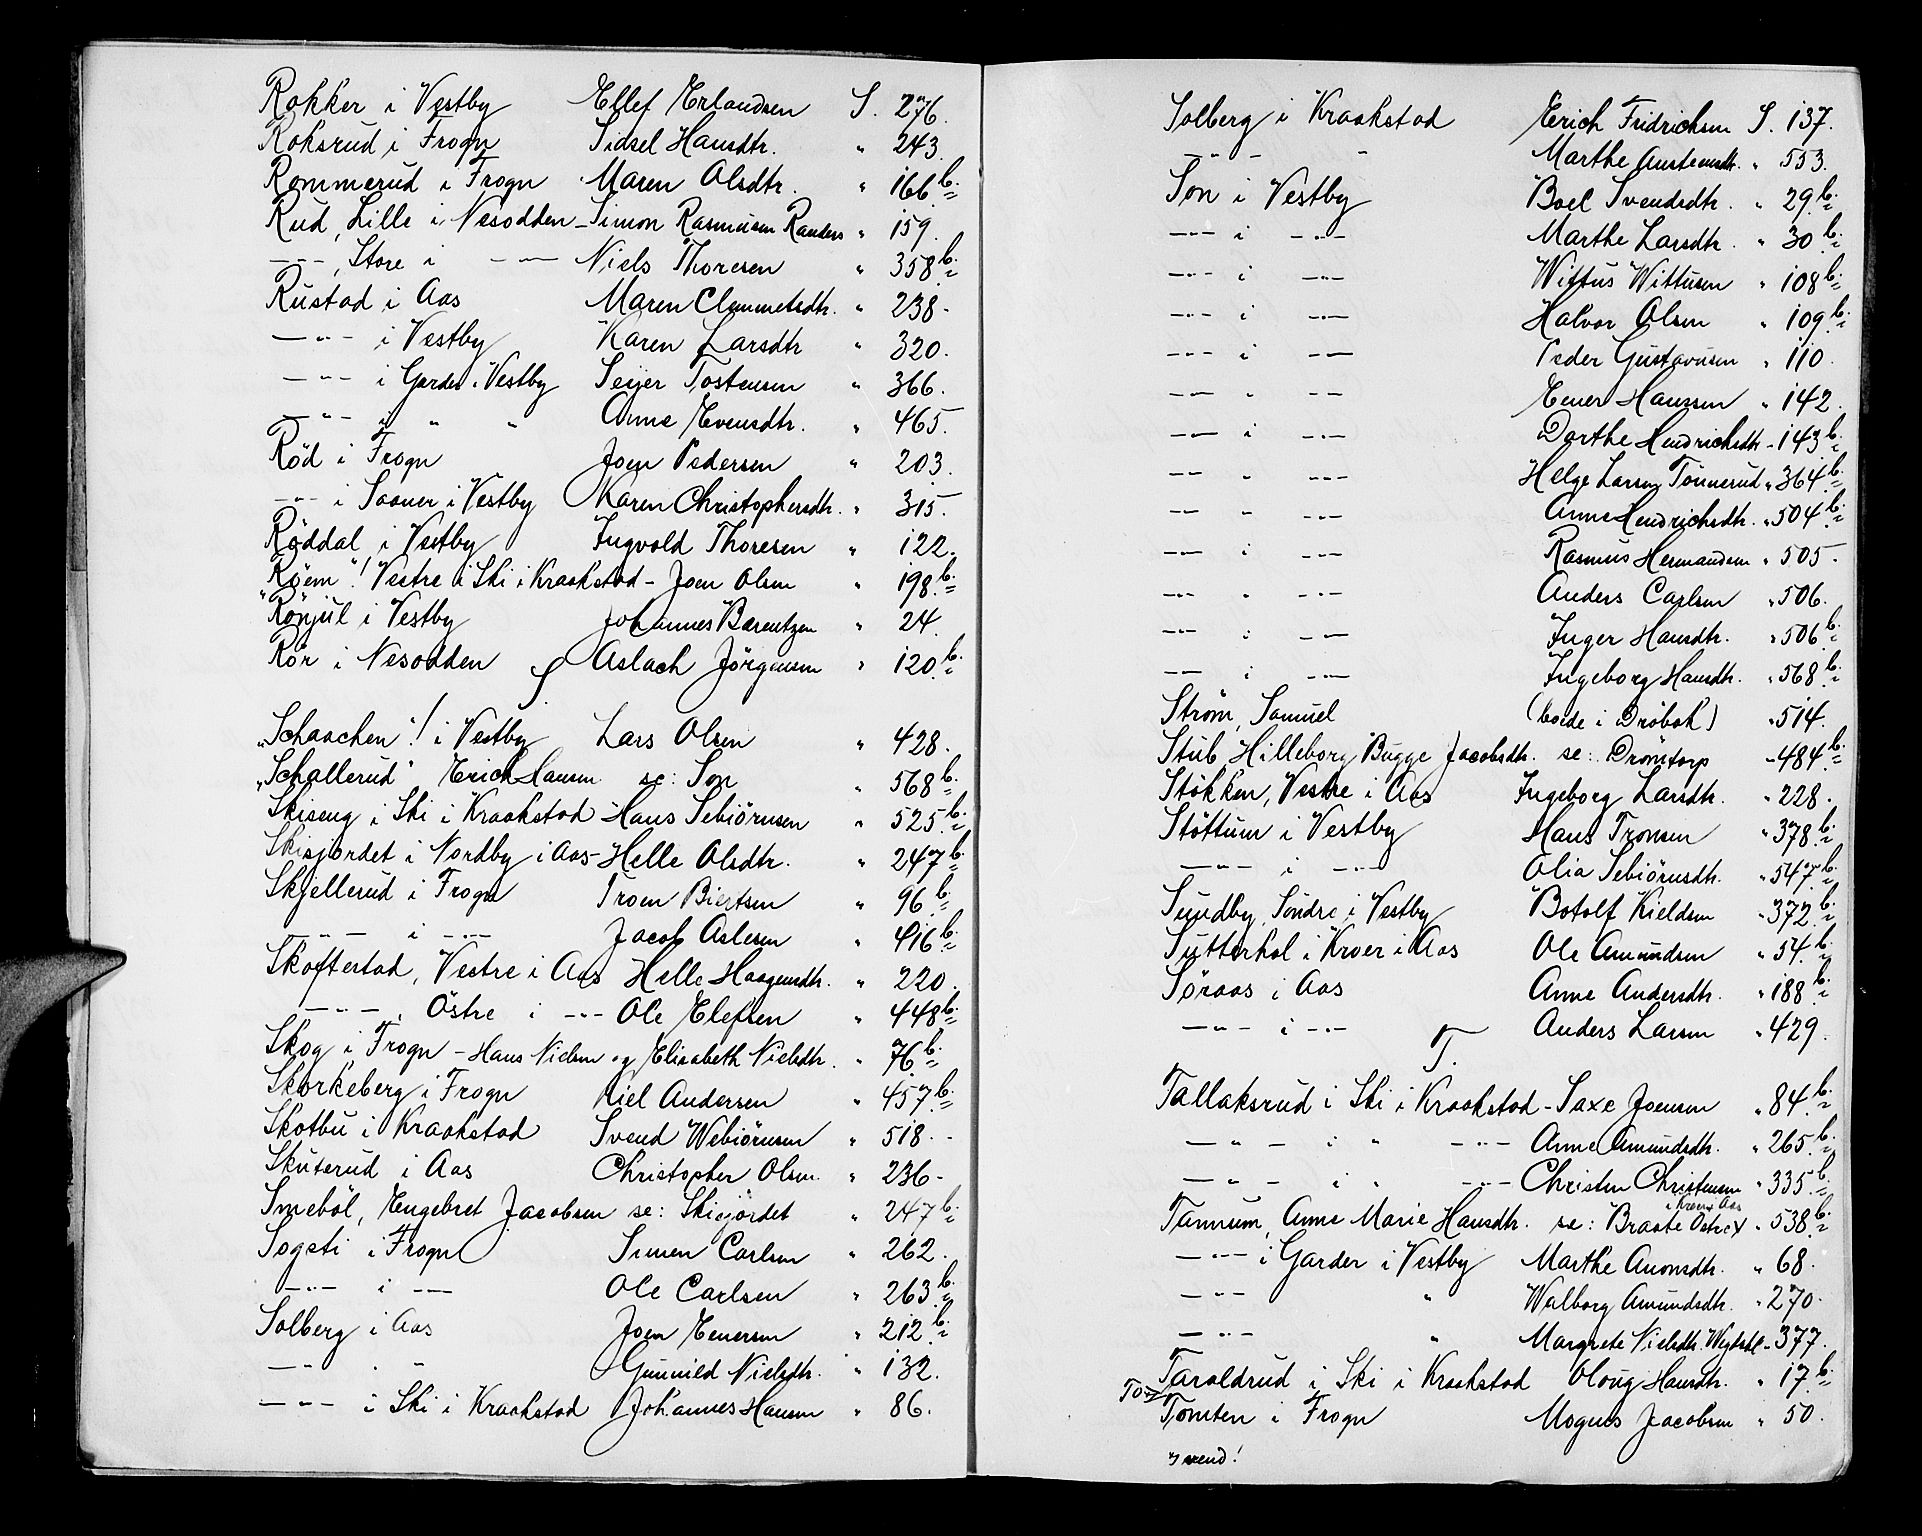 Rokker i Vestby Ellef Erlandsen S. 276.
Roksrud i Frogn Sidsel Hansdtr. " 243.
Rommerud i Frogn Maren Olsdtr. " 166 b.
Rud, Lille i Nesodden - Simon Rasmusen Randers " 159.
-"-, Store i -"- Niels Thoresen " 358 b.
Rustad i Aas Maren Clemmetsdtr. " 238.
-"- i Vestby Karen Larsdtr " 320.
-"- i Garder i Vestby Seijer Tostensen " 366.
-"- i " " Anne Evensdtr. " 465.
Röd i Frogn Joen Pedersen " 203.
-"- i Saaner i Vestby Karen Christophersdtr. " 315.
Röddal i Vestby Ingvold Thoresen " 122.
"Röem"! Vestre i Ski i Kraakstad - Joen Olsen " 198 b.
"Rönjul i Vestby Johannes Barentzen " 24.
Rör i Nesodden Aslach Jörgensen " 120 b.
S.
"Schaachen"! i Vestby Lars Olsen " 428.
"Schallerud" Erich Hansen se: Son " 568 b.
Skiseng i Ski i Kraakstad Hans Sebiörnsen " 525 b.
Skisjordet i Nordby i Aas - Helle Olsdtr. " 247 b.
Skjellerud i Frogn Troen Biertsen " 96 b.
-"- i -"- Jacob Aslesen " 416 b.
Skoftestad, Vestre i Aas Helle Haagensdtr. " 220.
-"-, Östre i -"- Ole Elefsen " 448 b.
Skog i Frogn - Hans Nielsen og Elisabeth Nielsdtr. " 76 b.
Skorkeberg i Frogn Kiel Andersen " 457 b.
Skotbu i Kraakstad Svend Webiörnsen " 518.
Skuterud i Aas Christopher Olsen " 236.
Smeböl, Engebret Jacobsen se: Skisjordet " 247 b.
Sogsti i Frogn Simen Carlsen " 262.
-"- i -"- Ole Carlsen " 263 b.
Solberg i Aas Joen Enersen " 212 b.
-"- " " Gunnild Nielsdtr. " 132.
-"- i Ski i Kraakstad Johannes Hansen " 86.
Solberg i Kraakstad Erich Fridrichsen S. 137.
-"- - Marthe Austensdtr. " 553.
Son i Vestby Boel Svendsdtr. " 29 b.
-"- i -"- Marthe Larsdtr. " 30 b.
-"- i -"- Wittus Wittusen " 108 b.
-"- i -"- Halvor Olsen " 109 b.
-"- i -"- Peder Gustavusen " 110.
-"- " -"- Ener Hanssen " 142.
-"- i -"- Dorthe Hendrichsdtr - 143 b.
-"- " -"- Helge Larsen Tönnerud " 364 b.
-"- " -"- Anne Hendrichsdtr. " 504 b.
-"- i -"- Rasmus Hermandsen " 505.
-"- " -"- Anders Carlsen " 506.
-"- i -"- Inger Hansdtr. " 506 b.
-"- i -"- Ingeborg Hansdtr. " 568 b.
Ström, Samuel (boede i Dröbak) " 514.
Stub, Hilleborg Bugge Jacobsdtr. se: Drömtorp - 484 b.
Stökken, Vestre i Aas Ingeborg Larsdtr. " 228.
Stöttum i Vestby Hans Tronsen " 378 b.
-"- i -"- Olia Sebiörnsdtr. " 547 b.
Sundby, Söndre i Vestby Botolf Kieldsen " 372 b.
Sutterhol i Kroer i Aas Ole Amundsen " 54 b.
Söraas i Aas Anne Andersdtr. " 188 b.
-"- i -"- Anders Larsen " 429.
T.
Tallaksrud i Ski i Kraakstad - Saxe Joensen " 84 b.
-"- i " -"- Anne Amundsdtr. " 265 b.
-"- i " -"- Christen Christensen " 335 b.
i Kroer i Aas
Tannum, Anne Marie Hansdtr. se: Braate Östre x " 538 b.
-"- i Garder i Vestby Marthe Amonsdtr. " 68.
-"- " Walborg Amundsdtr. " 270.
-"- " Margrete Nielsdtr. - 377.
Taraldrud i Ski i Kraakstad Oloug Hansdtr. " 17 b.
Tomten i Frogn Mogens Jacobsen " 50.
vend!